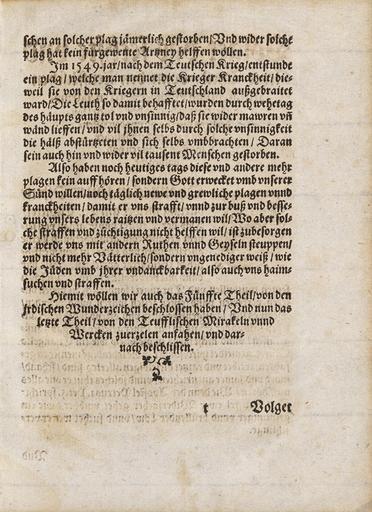 schen an solcher plag jämerlich gestorben/Vnd wider solche
plag hat kein fürgewente Artzney helffen wöllen.
Im 1549. jar/nach dem Teutschen Krieg/entstunde
ein plag/welche man nennet die Krieger Kranckheit/die-
weil sie von den Kriegern in Teutschland außgebraitet
ward/Die Leuth so damit behafftet/wurden durch wehetag
des häupts gantz tol vnd vnsinnig/daß sie wider mawren vñ
wänd lieffen/vnd vil jhnen selbs durch solche vnsinnigkeit
die hälß abstürtzeten vnd sich selbs vmbbrachten/Daran
sein auch hin vnd wider vil tausent Menschen gestorben.
Also haben noch heutiges tags diese vnd andere mehr
plagen kein auff hören/sondern Gott erwecket vmb vnserer
Sünd willen/noch täglich newe vnd grewliche plagen vnnd
kranckheiten/damit er vns strafft/vnnd zur buß vnd besse-
rung vnsers lebens raitzen vnd vermanen wil/Wo aber sol-
che straffen vnd züchtigung nicht helffen wil/ist zubesorgen
er werde vns mit andern Ruthen vnnd Geyseln steuppen/
vnd nicht mehr Vätterlich/sondern vngenediger weiß/wie
die Jüden vmb jhrer vndanckbarkeit/also auch vns haim-
suchen vnd straffen.
Hiemit wöllen wir auch das Fünffte Theil/von den
jrdischen Wunderzeichen beschlossen haben/Vnd nun das
letzte Theil/von den Teufflischen Mirakeln vnnd
Wercken zuerzelen anfahen/vnd dar-
nach beschlissen.
t Volget